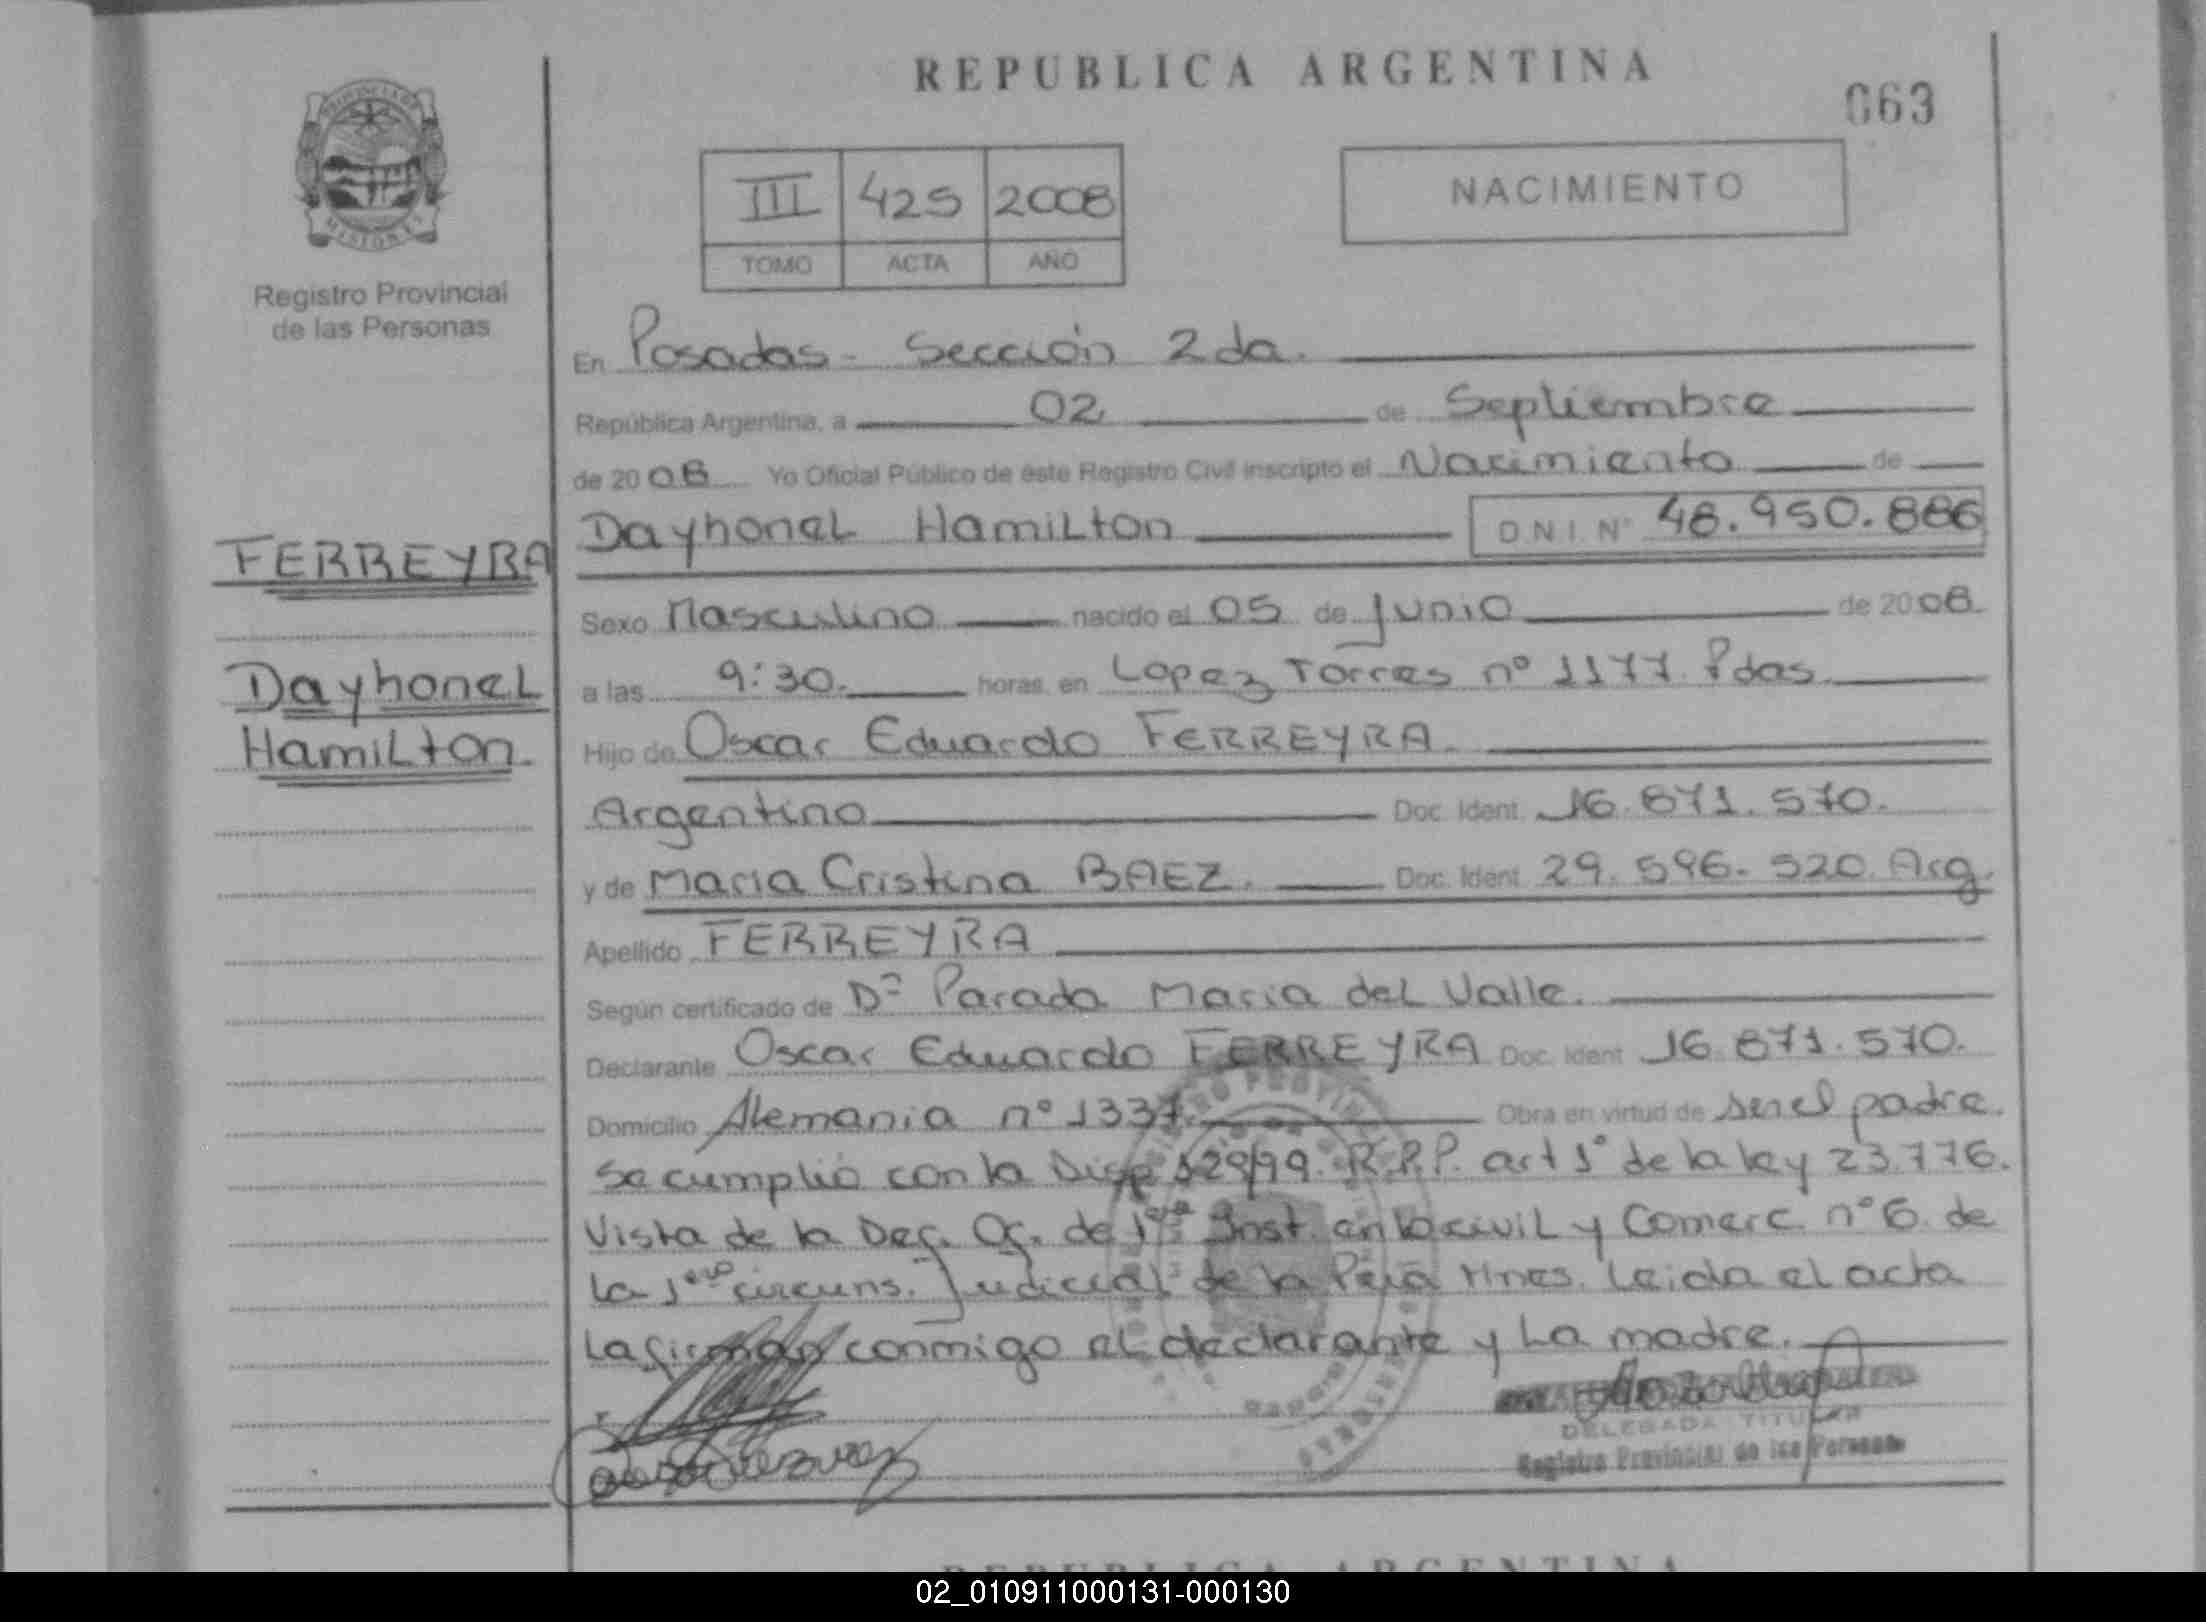 REPUBLICA ARGENTINA
063
PROVINCIA DE
MISIONES
Registro Provincial
de las Personas
III 425 2008
TOMO ACTA AÑO
NACIMIENTO
En Posadas - Sección 2da.
República Argentina, a 02 de Septiembre
de 2008 Yo Oficial Público de éste Registro Civil inscripto el Nacimiento de
FERREYRA
Dayhonel Hamilton D.N.I. Nº 48.950.886
Sexo Masculino nacido el 05 de Junio de 2008
Dayhonel
Hamilton.
a las 9:30. horas, en Lopez Torres nº 1177. Pdas.
Hijo de Oscar Eduardo FERREYRA.
Argentino Doc. Ident. 16.871.570.
y de Maria Cristina BAEZ. Doc. Ident. 29.596.520. Arg.
Apellido FERREYRA
Según certificado de Dª Parada Maria del Valle.
Declarante Oscar Eduardo FERREYRA Doc. Ident. 16.871.570.
Domicilio Alemania nº 1337. Obra en virtud de ser el padre.
Se cumplió con la Disp 529/99. R.P.P. art 1º de la ley 23.776.
Vista de la Def. Of. de 1era Inst. en lo civil y Comerc. nº 6. de
la 1era circuns. Judicial de la Pcia Mnes. Leida el acta
la firman conmigo el declarante y la madre.
DELEGADA TITULAR
Registro Provincial de las Personas
REPUBLICA ARGENTINA
02_010911000131-000130